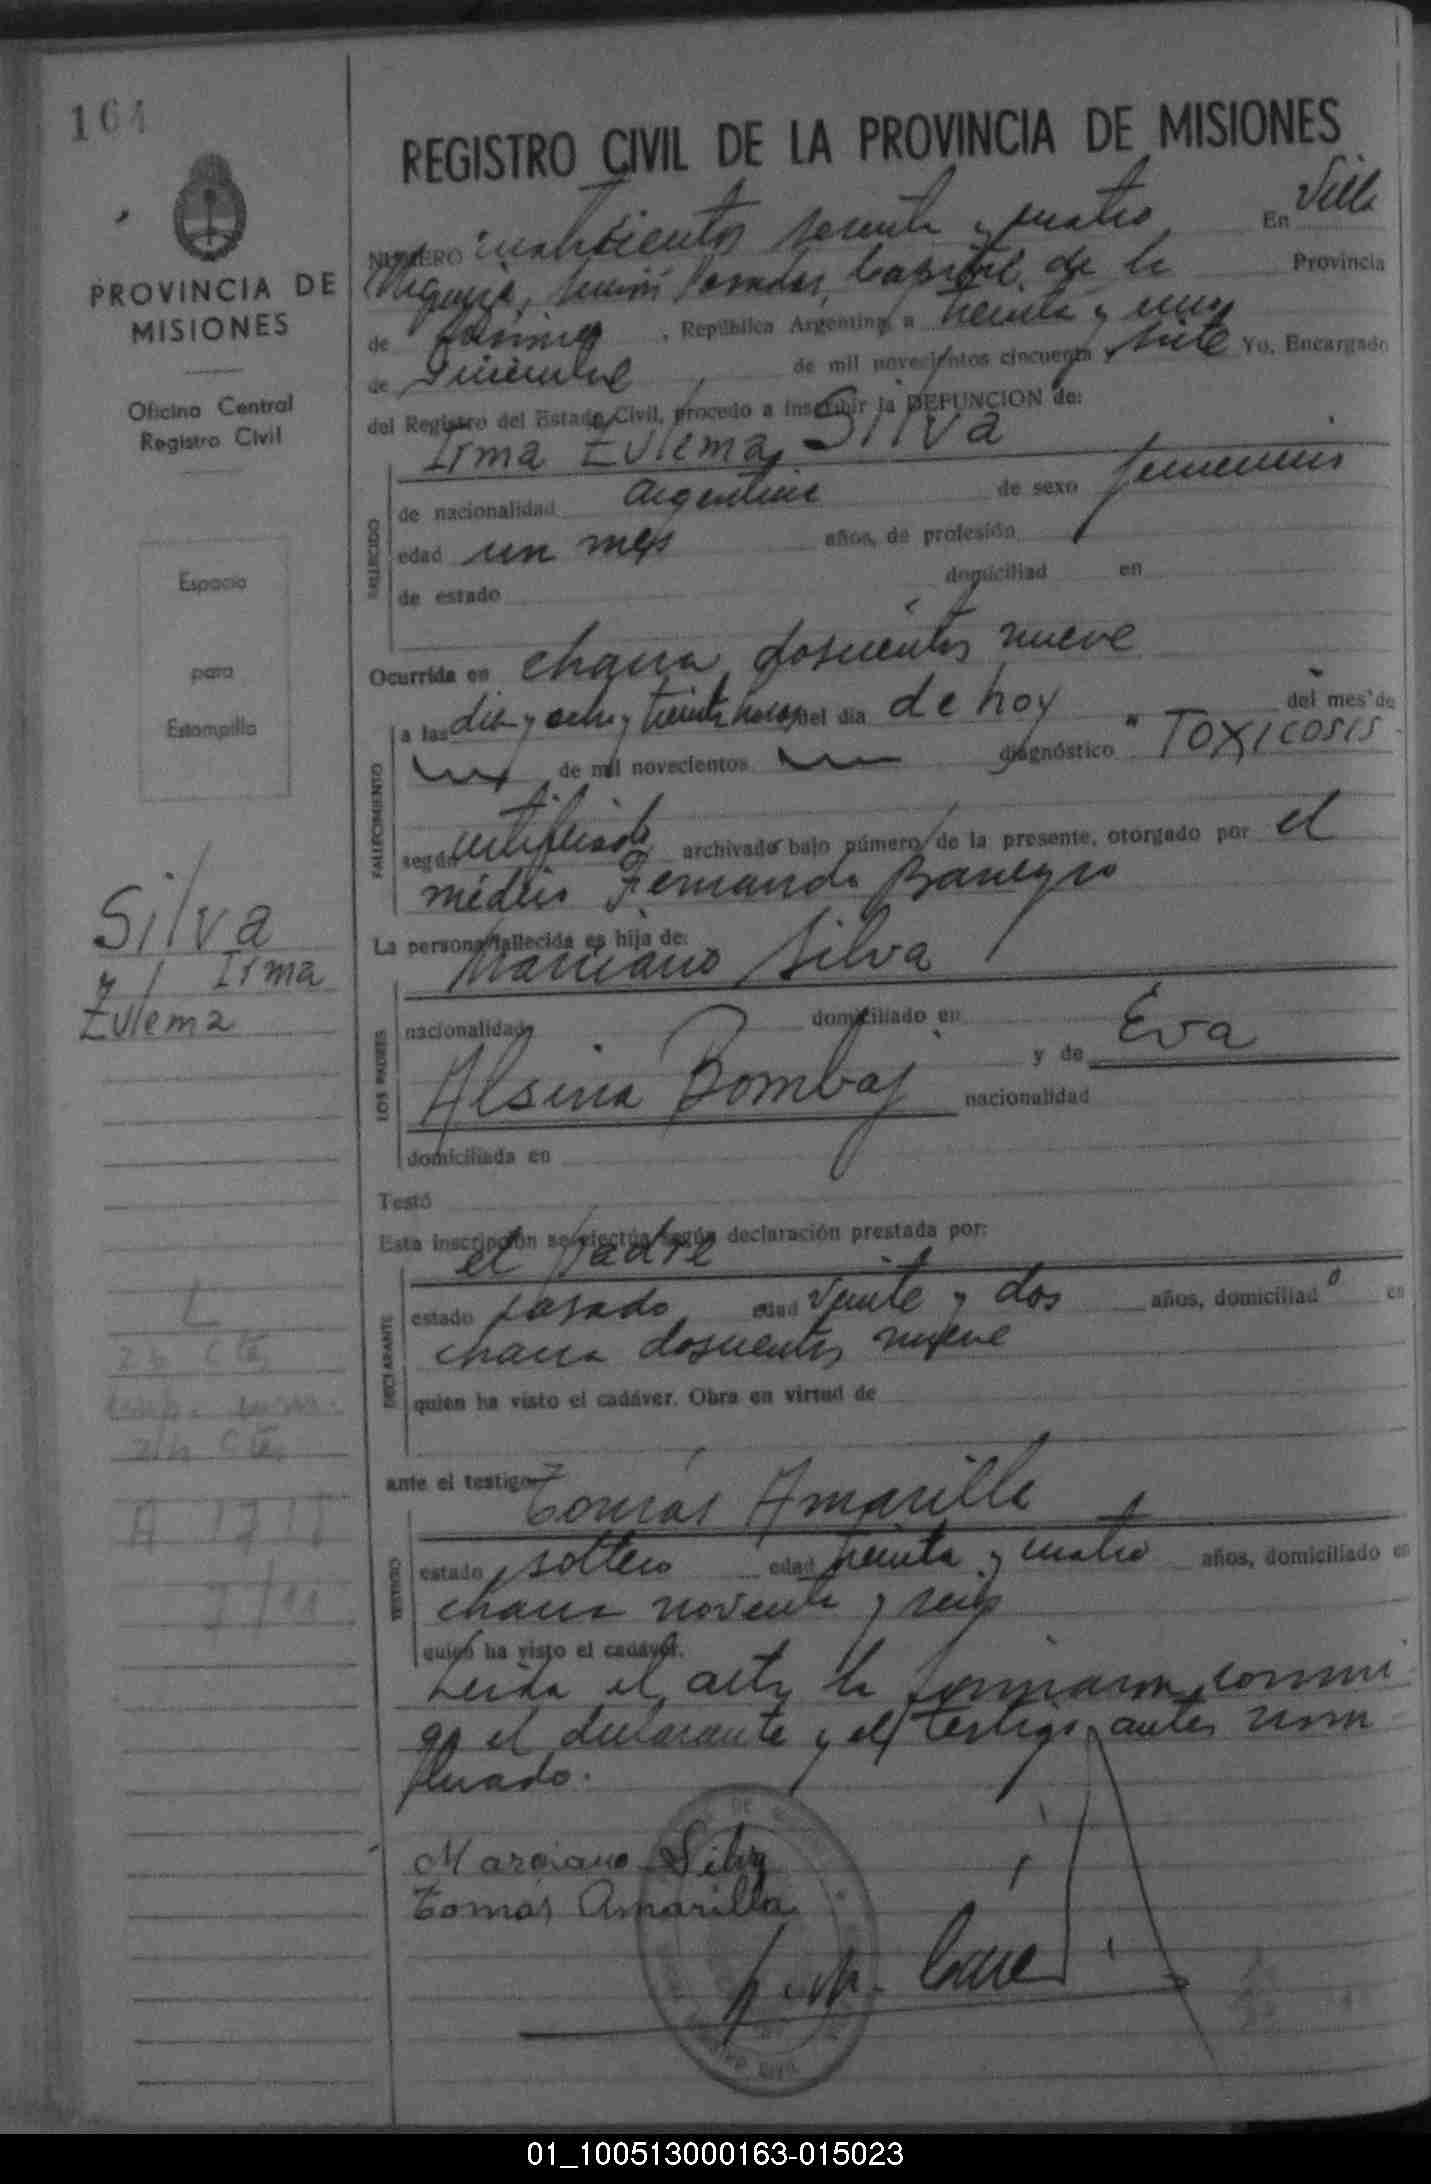 164
REGISTRO CIVIL DE LA PROVINCIA DE MISIONES
PROVINCIA DE
MISIONES
Oficina Central
Registro Civil
Espacio
para
Estampilla
Silva
Irma
Zulema
NUMERO cuatrocientos setenta y cuatro En Villa
Posadas, Capital de la Provincia
de Misiones, República Argentina, a treinta y uno
de Diciembre de mil novecientos cincuenta y siete Yo, Encargado
del Registro del Estado Civil, procedo a inscribir la DEFUNCION de:
Irma Zulema Silva
FALLECIDO
de nacionalidad Argentina de sexo femenino
edad un mes años, de profesión
de estado domiciliad en
Ocurrida en chacra doscientos nueve
FALLECIMIENTO
a las diez y ocho y treinta horas del día de hoy del mes de
de mil novecientos diagnóstico "TOXICOSIS
según certificado archivado bajo número de la presente, otorgado por el
médico Fernando
La persona fallecida es hija de:
Marciano Silva
LOS PADRES
nacionalidad domiciliado en
y de Eva
Alsina Bombaj nacionalidad
domiciliada en
Testó
Esta inscripción se efectúa según declaración prestada por:
el padre
DECLARANTE
estado casado edad veinte y dos años, domiciliado en
chacra doscientos nueve
quien ha visto el cadáver. Obra en virtud de
ante el testigo
Tomás Amarilla
TESTIGO
estado soltero edad treinta y cuatro años, domiciliado en
chacra noventa y seis
quien ha visto el cadáver.
Leída el acta la firmaron conmi
go el declarante y el testigo antes nom
brado.
Marciano Silva
Tomás Amarilla
01_100513000163-015023